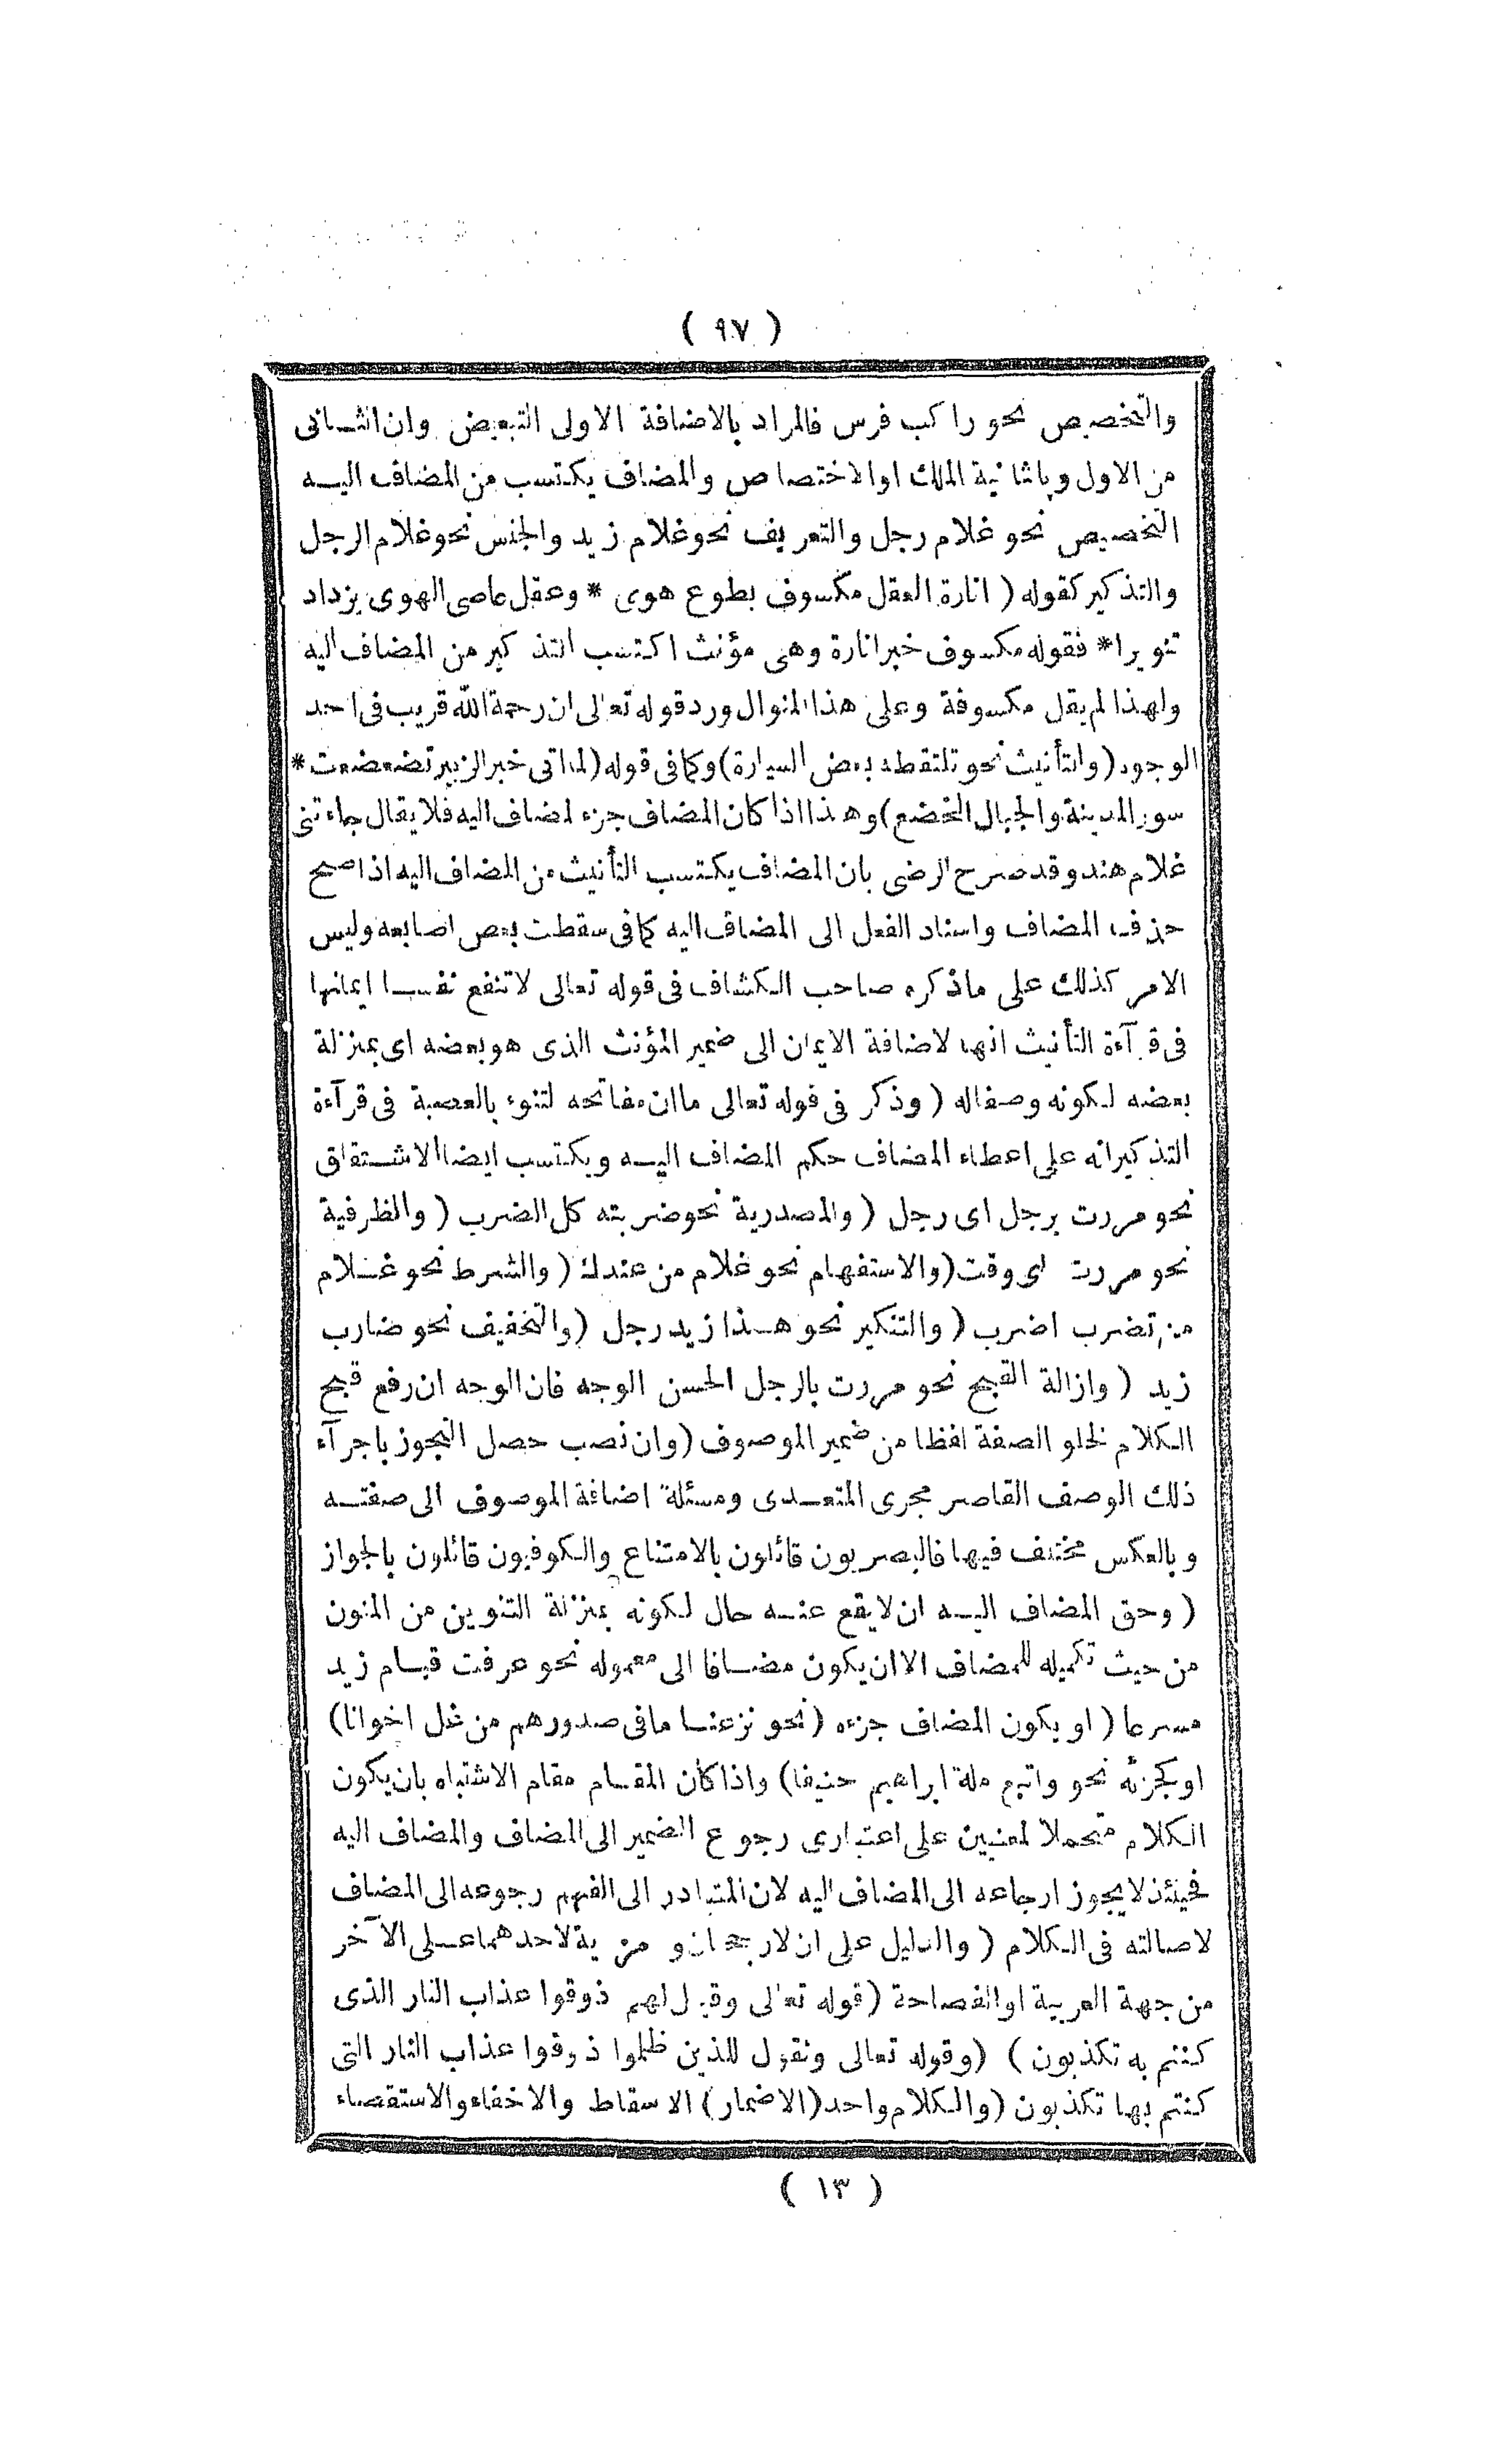 ( ٩٧ )
والتخصيص نحو راكب فرس فالمراد بالاضافة الاولى التبعيض وان الثانى
من الاول وبالثانية الملك اوالاختصاص والمضاف يكتسب من المضاف اليه
التخصيص نحو غلام رجل والتعريف نحوغلام زيد والجنس نحوغلام الرجل
والتذكير كقوله ( انارة العقل مكسوف بطوع هوى * وعقل عاصى الهوى يزداد
تنويرا * فقوله مكسوف خبرانارة وهى مؤنث اكتسب التذكير من المضاف اليه
ولهذا لم يقل مكسوفة وعلى هذا المنوال ورد قوله تعالى ان رحمة الله قريب فى احد
الوجوه ( والتأنيث نحو تلتقطه بعض السيارة ) وكما فى قوله ( لما اتى خبر الزبير تضعضعت *
سور المدينة والجبال الخضع ) وهذا اذا كان المضاف جزء لمضاف اليه فلا يقال جاءتنى
غلام هند وقد صرح الرضى بان المضاف يكتسب التأنيث من المضاف اليه اذا صح
حذف المضاف واسناد الفعل الى المضاف اليه كما فى سقطت بعض اصابعه وليس
الامر كذلك على ماذكره صاحب الكشاف فى قوله تعالى لاتنفع نفسا ايمانها
فى قرآءة التأنيث انها لاضافة الايمان الى ضمير المؤنث الذى هو بعضه اى بمنزلة
بعضه لكونه وصفاله ( وذكر فى قوله تعالى ماان مفاتحه لتنوء بالعصبة فى قرآءة
التذكير انه على اعطاء المضاف حكم المضاف اليه ويكتسب ايضا الاشتقاق
نحو مررت برجل اى رجل ( والمصدرية نحو ضربته كل الضرب ( والظرفية
نحو مررت اى وقت ( والاستفهام نحو غلام من عندك ( والشرط نحو غلام
من تضرب اضرب ( والتنكير نحو هذا زيد رجل ( والتخفيف نحو ضارب
زيد ( وازالة القبح نحو مررت بالرجل الحسن الوجه فان الوجه ان رفع قبح
الكلام لخلو الصفة لفظا من ضمير الموصوف ( وان نصب حصل التجوز باجرآء
ذلك الوصف القاصر مجرى المتعدى ومسئلة اضافة الموصوف الى صفته
وبالعكس مختلف فيها فالبصريون قائلون بالامتناع والكوفيون قائلون بالجواز
( وحق المضاف اليه ان لايقع عنه حال لكونه بمنزلة التنوين من المنون
من حيث تكميله للمضاف الا ان يكون مضافا الى معموله نحو عرفت قيام زيد
مسرعا ( او يكون المضاف جزءه ( نحو نزعنا مافى صدورهم من غل اخوانا )
او كجزئه نحو واتبع ملة ابراهيم حنيفا ) واذا كان المقام مقام الاشتباه بان يكون
الكلام متحملا لمعنيين على اعتبارى رجوع الضمير الى المضاف والمضاف اليه
فحينئذ لايجوز ارجاعه الى المضاف اليه لان المتبادر الى الفهم رجوعه الى المضاف
لاصالته فى الكلام ( والدليل على ان لا رجحان و مزية لاحدهما على الآخر
من جهة العربية اوالفصاحة ( قوله تعالى وقيل لهم ذوقوا عذاب النار الذى
كنتم به تكذبون ) ( وقوله تعالى ونقول للذين ظلموا ذوقوا عذاب النار التى
كنتم بها تكذبون ( والكلام واحد ( الاضمار ) الاسقاط والاخفاء والاستقصاء
( ١٣ )